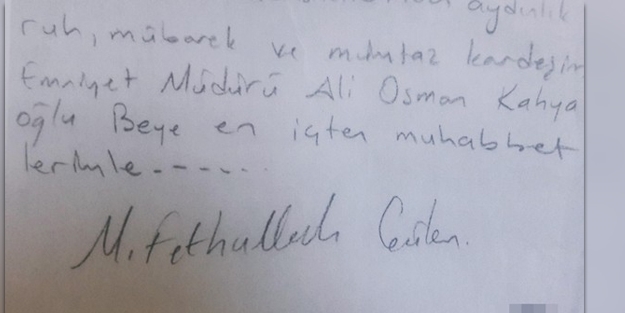 aydınlık
ruh, mübarek ve mümtaz kardeşim
Emniyet Müdürü Ali Osman Kahya
oğlu Beye en içten muhabbet
lerimle-------
M. Fethullah Gülen.